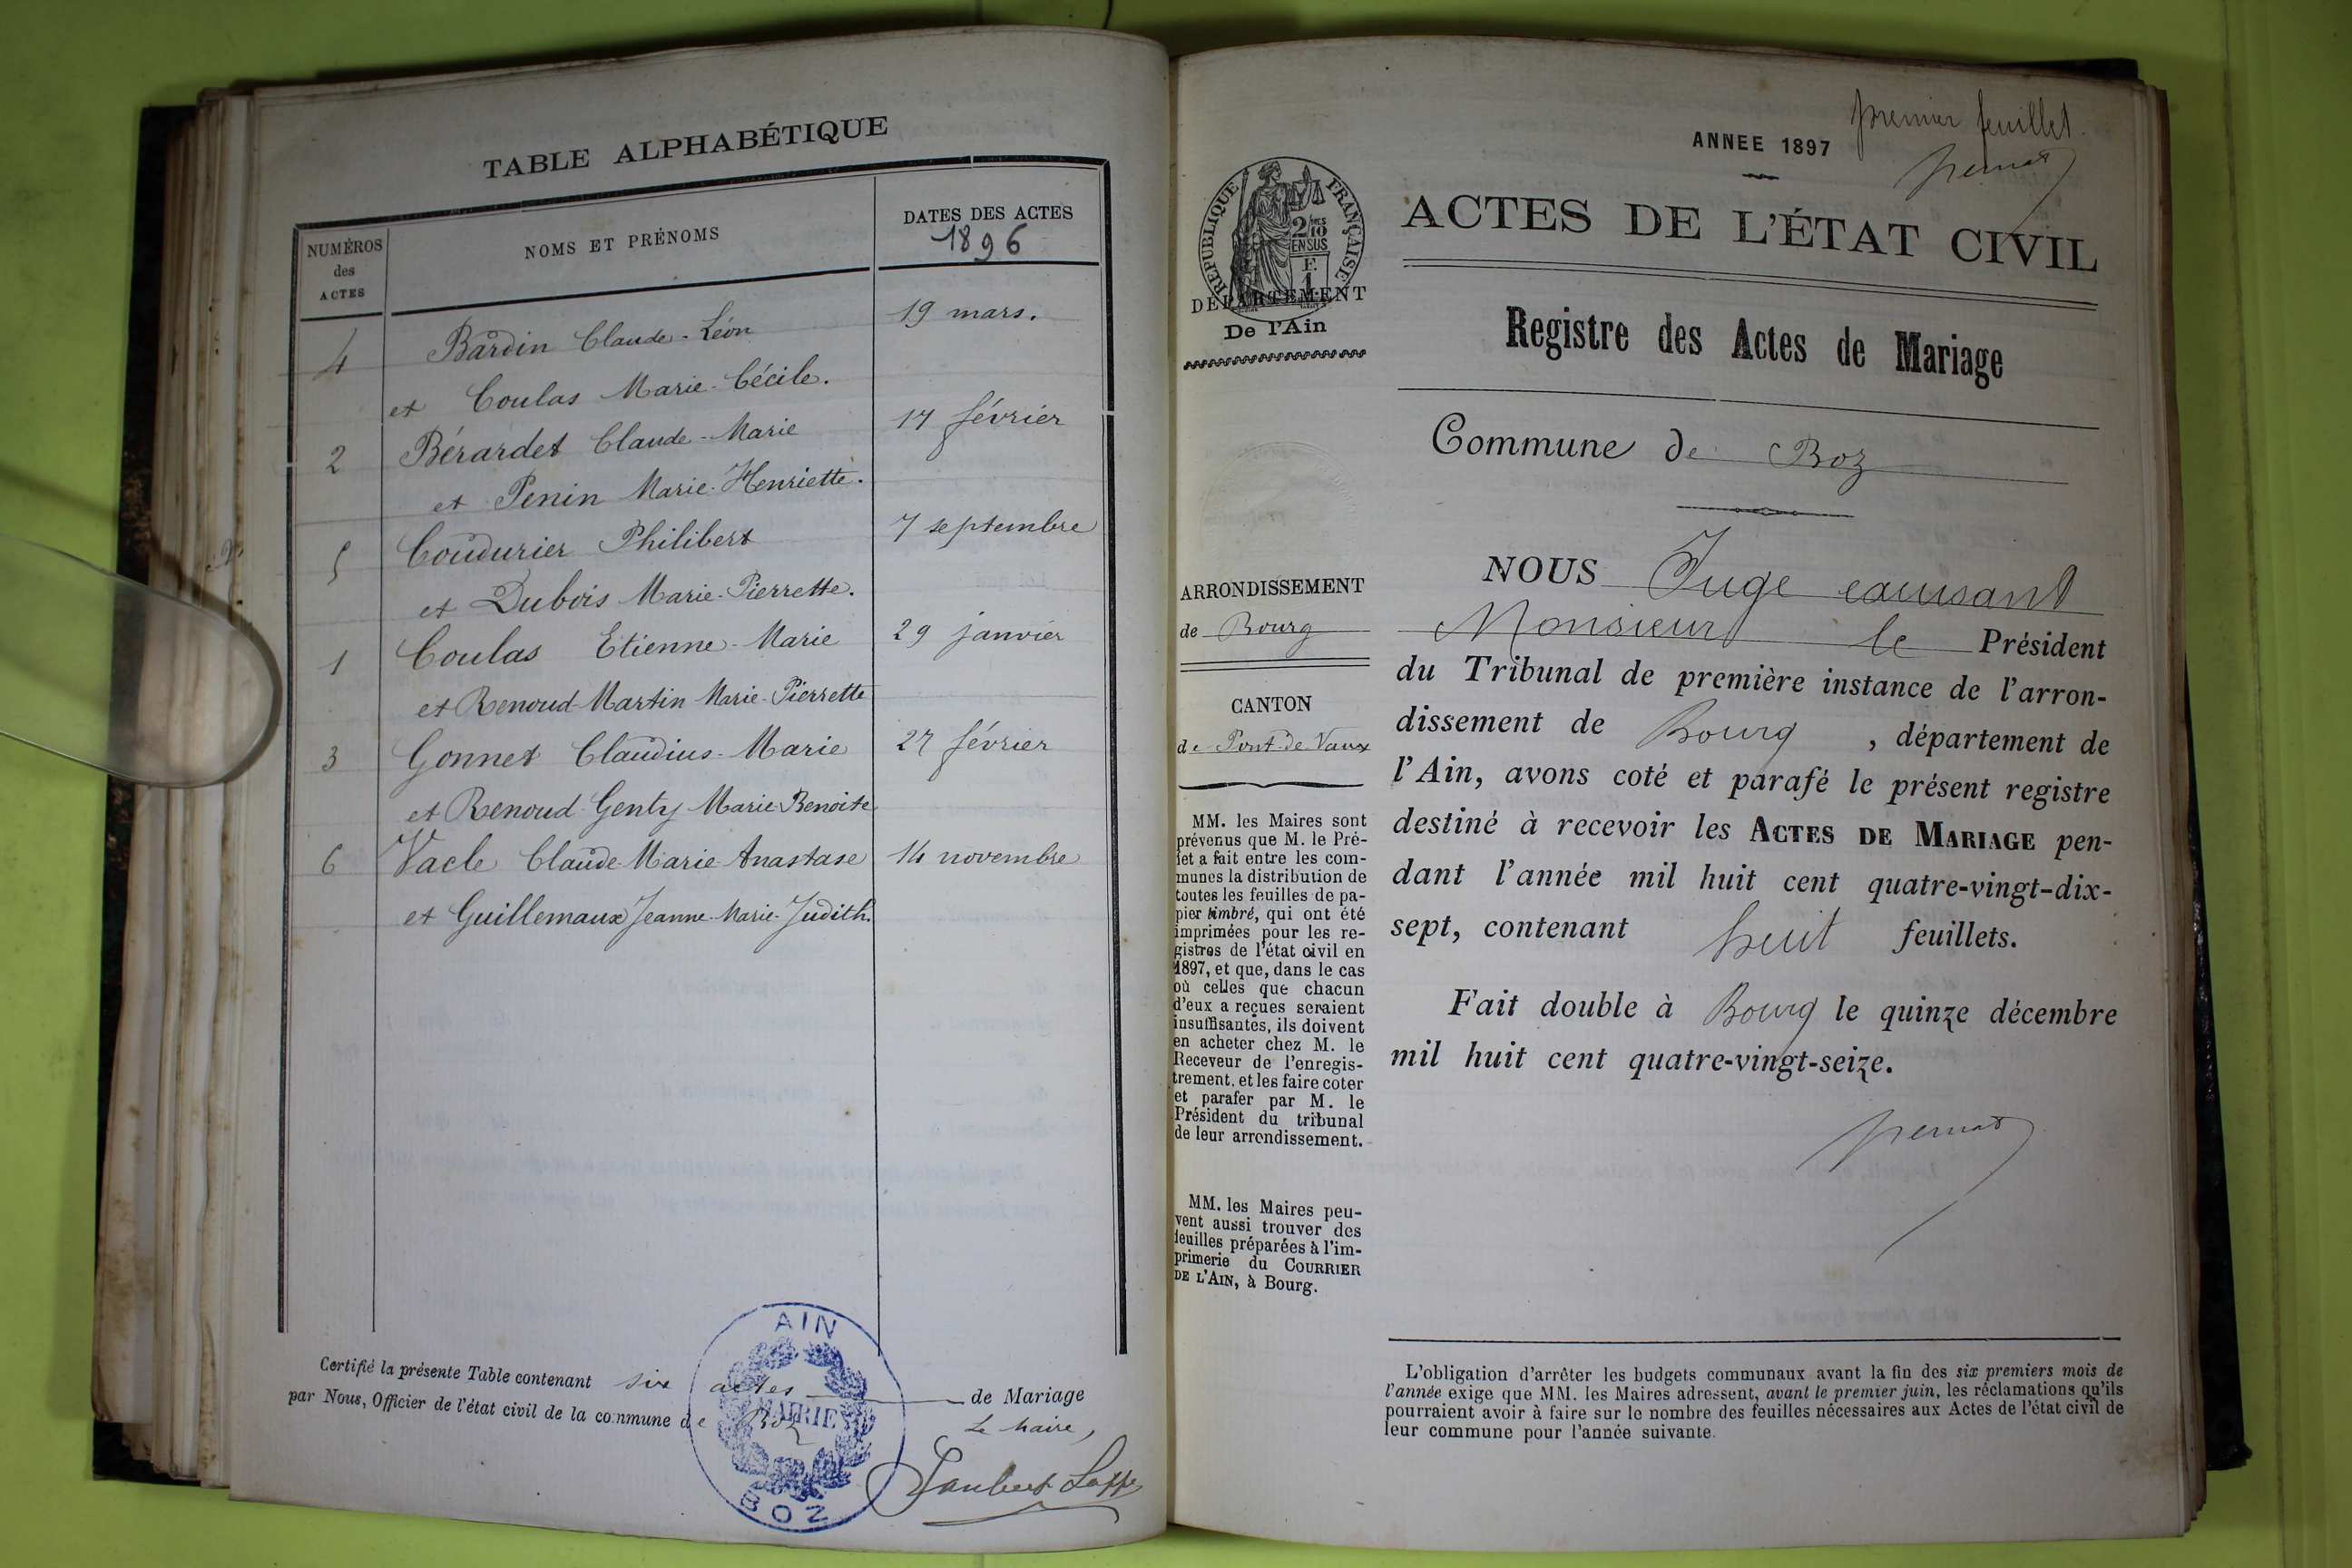 TABLE ALPHABÉTIQUE
NUMÉROS des ACTES
NOMS ET PRÉNOMS
DATES DES ACTES
1896
4 Bardin Claude-Léon 19 mars.
et Coulas Marie-Cécile.
2 Bérardet Claude-Marie 17 février
et Penin Marie-Henriette.
5 Coudurier Philibert 7 septembre
et Dubois Marie-Pierrette.
1 Coulas Etienne-Marie 29 janvier
et Renoud-Martin Marie-Pierrette
3 Gonnet Claudius-Marie 27 février
et Renoud-Genty Marie-Benoite
6 Vacle Claude-Marie-Anastase 14 novembre
et Guillemaux Jeanne-Marie-Judith.
Certifié la présente Table contenant six actes de Mariage
par Nous, Officier de l'état civil de la commune de Boz
Le Maire,
AIN
MAIRIE
BOZ
premier feuillet.
ANNEE 1897
RÉPUBLIQUE FRANÇAISE
2/10
EN SUS
F.
1
ACTES DE L'ÉTAT CIVIL
DÉPARTEMENT
De l'Ain
Registre des Actes de Mariage
Commune de Boz
ARRONDISSEMENT
de Bourg
CANTON
de Pont-de-Vaux
MM. les Maires sont
prévenus que M. le Pré-
fet a fait entre les com-
munes la distribution de
toutes les feuilles de pa-
pier timbré, qui ont été
imprimées pour les re-
gistres de l'état civil en
1897, et que, dans le cas
où celles que chacun
d'eux a reçues seraient
insuffisantes, ils doivent
en acheter chez M. le
Receveur de l'enregis-
trement, et les faire coter
et parafer par M. le
Président du tribunal
de leur arrondissement.
MM. les Maires peu-
vent aussi trouver des
feuilles préparées à l'im-
primerie du COURRIER
DE L'AIN, à Bourg.
NOUS Juge
Monsieur le Président
du Tribunal de première instance de l'arron-
dissement de Bourg, département de
l'Ain, avons coté et parafé le présent registre
destiné à recevoir les ACTES DE MARIAGE pen-
dant l'année mil huit cent quatre-vingt-dix-
sept, contenant huit feuillets.
Fait double à Bourg le quinze décembre
mil huit cent quatre-vingt-seize.
L'obligation d'arrêter les budgets communaux avant la fin des six premiers mois de
l'année exige que MM. les Maires adressent, avant le premier juin, les réclamations qu'ils
pourraient avoir à faire sur le nombre des feuilles nécessaires aux Actes de l'état civil de
leur commune pour l'année suivante.